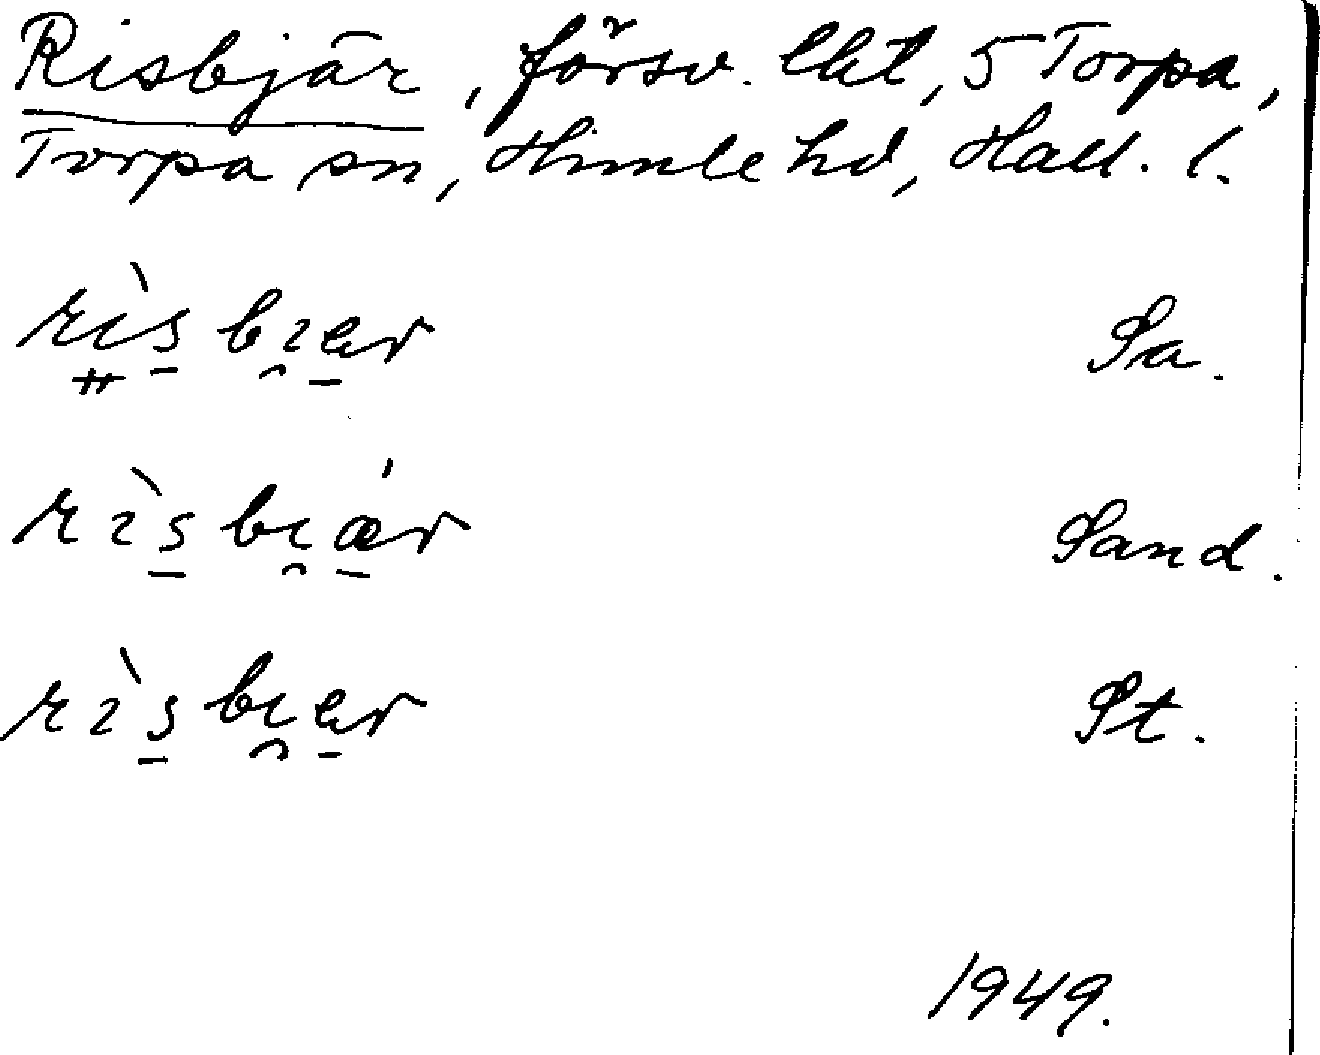 Risbjär, försv. lht, 5 Torpa,
Torpa sn, Himle hd, Hall. l.
rìsbɪær Sa.
rìsbɪǽr Sand.
rìsbɪær St.
1949.